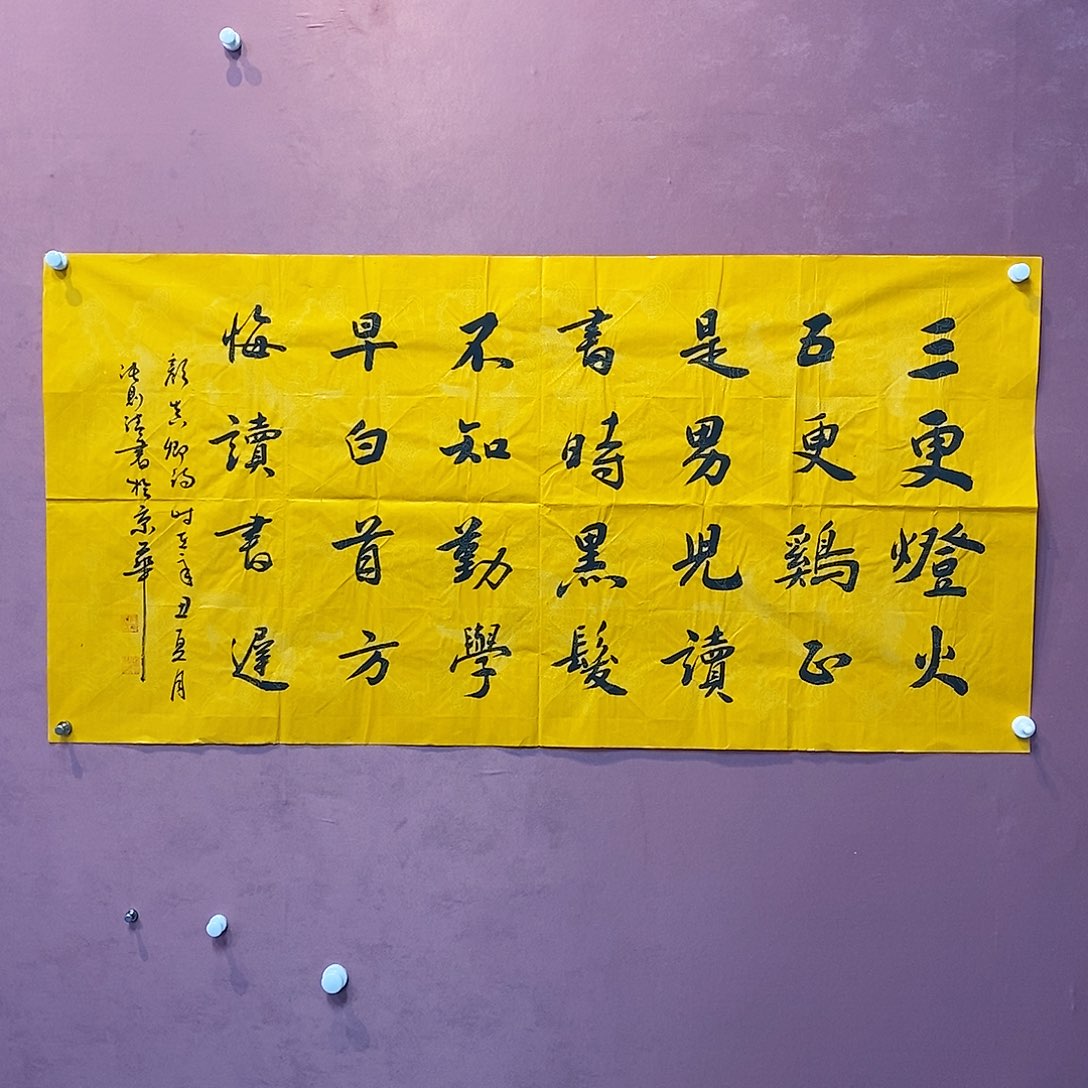 三更燈火
五更鷄正
是男兒讀
書時黑髮
不知勤學
早白首方
悔讀書遲
顏真卿詩時在辛丑夏月
張則法書於京華